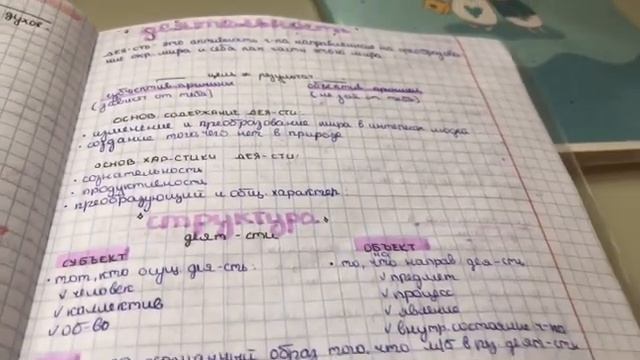 духов.
деятельность
дея-сть - это активность ч-ка направленная на преобразова
ние окр. мира и себя как части этого мира
цель ≠ результат
субъектив. причини
объектив. причини
(зависит от тебя)
(не зав от тебя)
ОСНОВ. СОДЕРЖАНИЕ ДЕЯ-СТИ:
• изменение и преобразование мира в интересах людей
• создание того, чего нет в природе
ОСНОВ ХАР-СТИКИ ДЕЯ-СТИ:
• сознательность
• продуктивность
• преобразующий и общ. характер
структура
деят-сти
СУБЪЕКТ
ОБЪЕКТ
• тот, кто осущ. дея-сть:
• то, на что направ дея-сть
✓ человек
✓ предмет
✓ коллектив
✓ процесс
✓ об-во
✓ явление
✓ внутр. состояние ч-ка
образ того, что м/б в рез. деят-сти